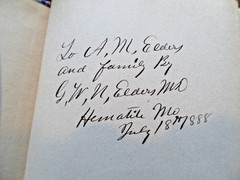 To A, M, Elders
and family By
G, W, N, Elders MD
Hematite Mo
July 18th 1888